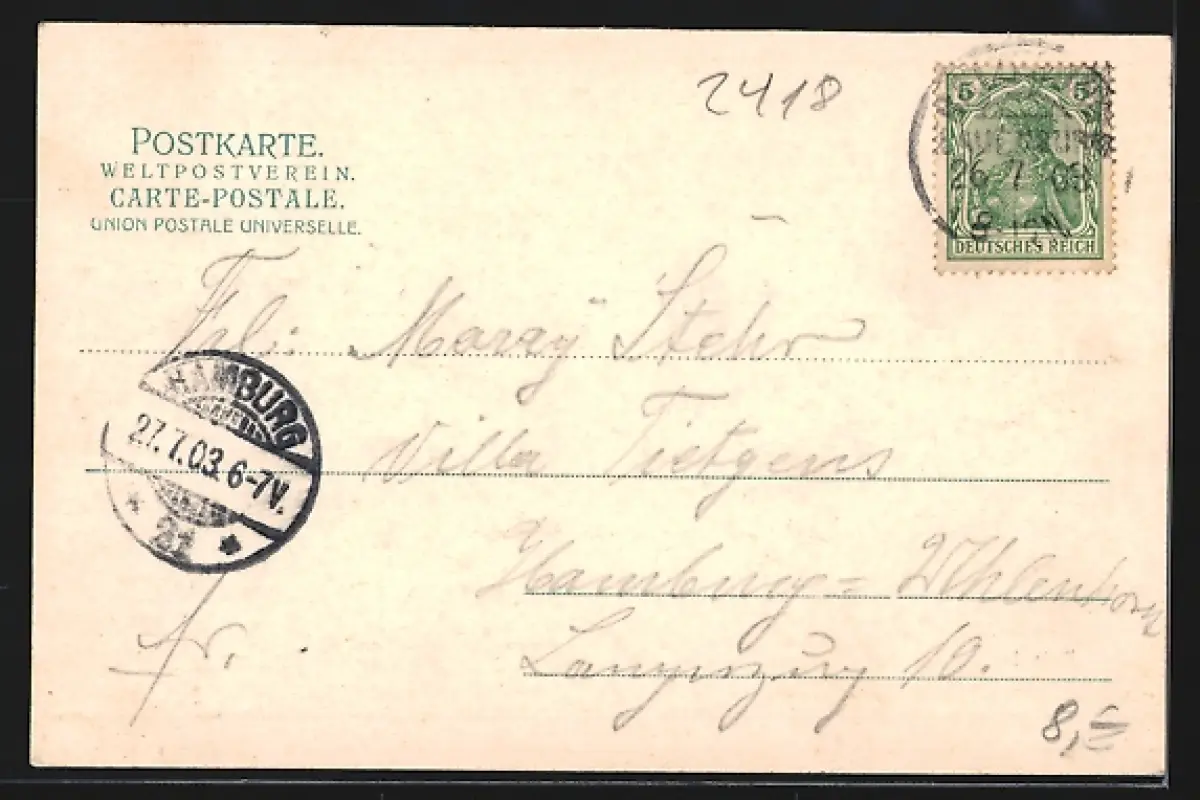 2418
POSTKARTE.
WELTPOSTVEREIN.
CARTE-POSTALE.
UNION POSTALE UNIVERSELLE.
5 5
26 7 03
8
DEUTSCHES REICH
Frl: Marry Stehr
Villa Tietgens
Hamburg = Uhlenhorst
10.
HAMBURG
27.7.03. 6-7V.
* 21 *
fr.
8,=